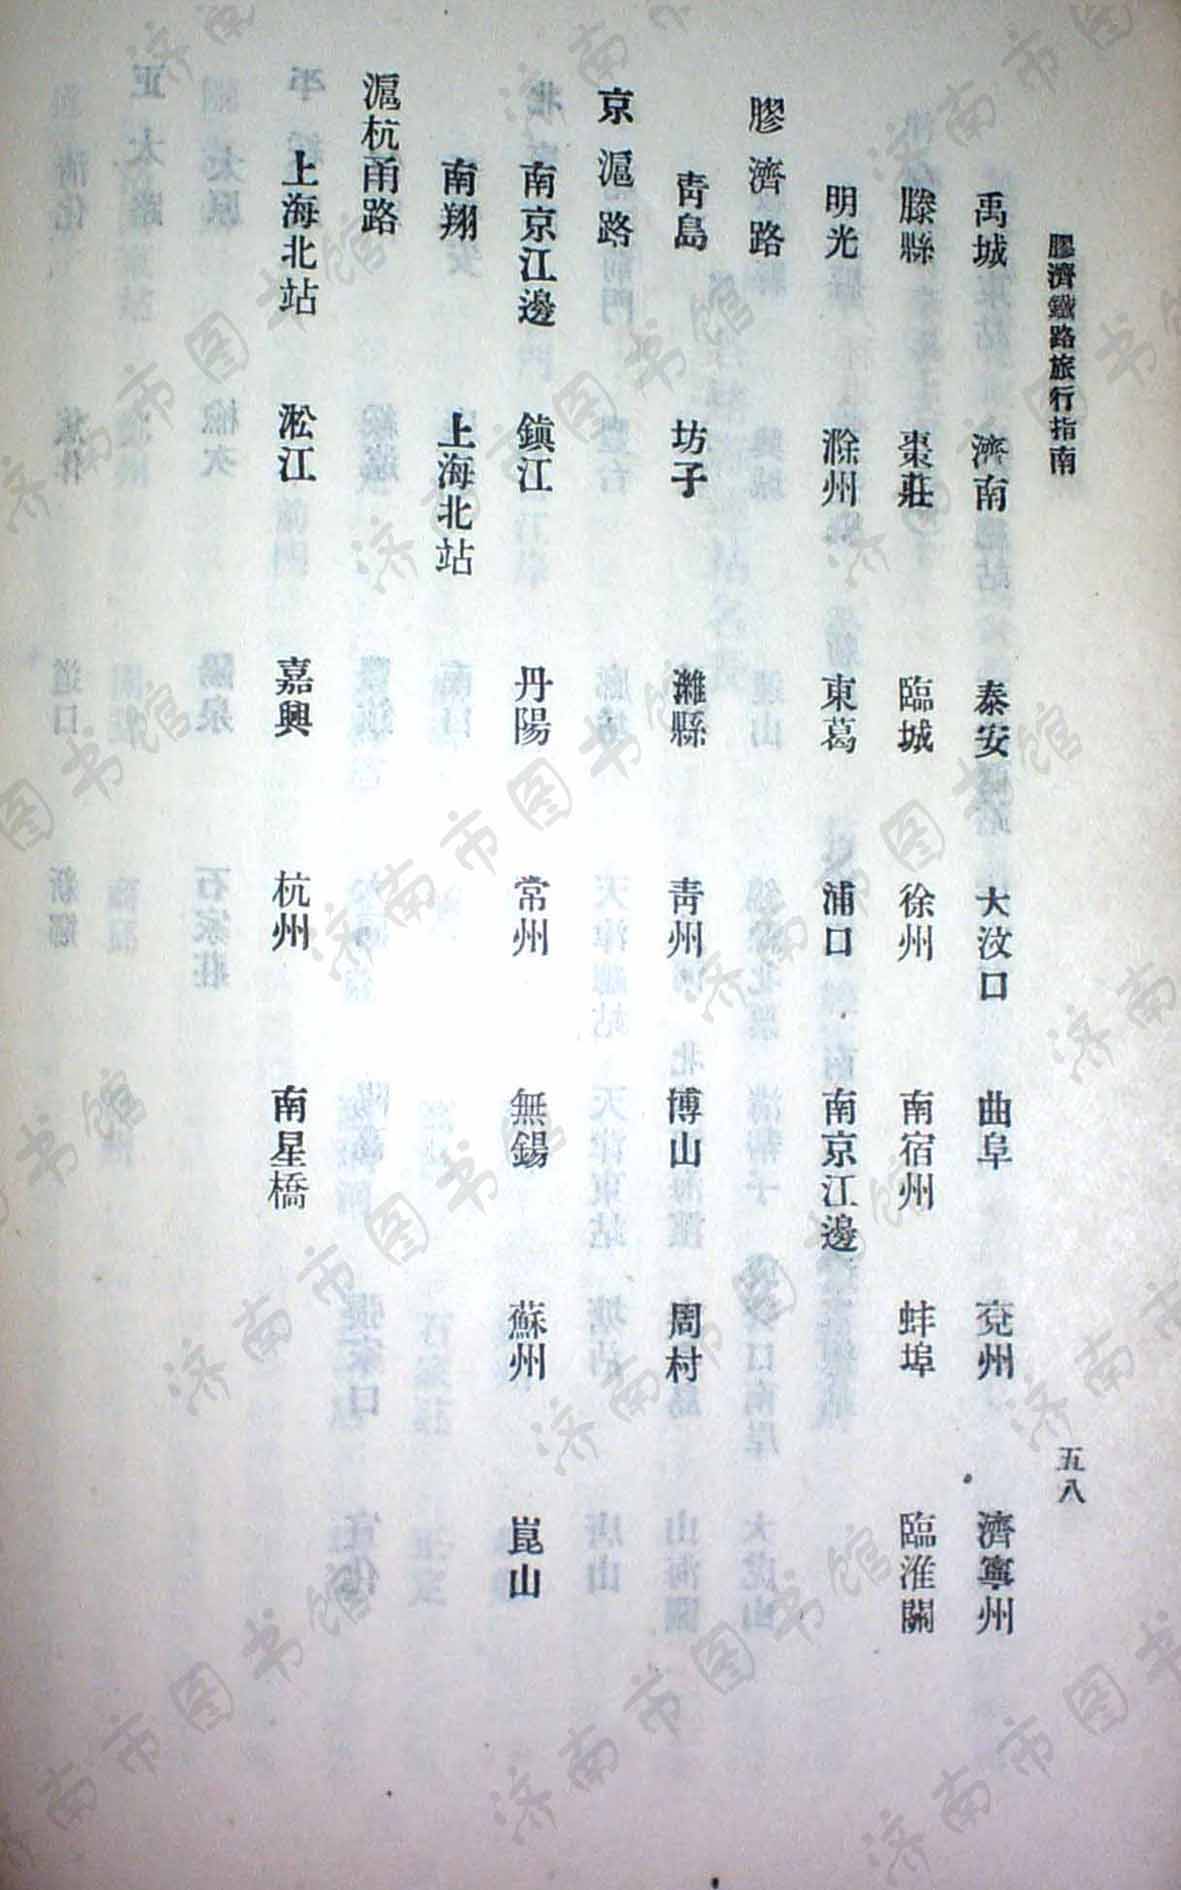 膠濟鐵路旅行指南
五八
禹城 濟南 泰安 大汶口 曲阜 兗州 濟寧州
滕縣 棗莊 臨城 徐州 南宿州 蚌埠 臨淮關
明光 滁州 東葛 浦口 南京江邊
膠濟路
青島 坊子 濰縣 青州 博山 周村
京滬路
南京江邊 鎭江 丹陽 常州 無錫 蘇州 崑山
南翔 上海北站
滬杭甬路
上海北站 淞江 嘉興 杭州 南星橋
济南市图书馆